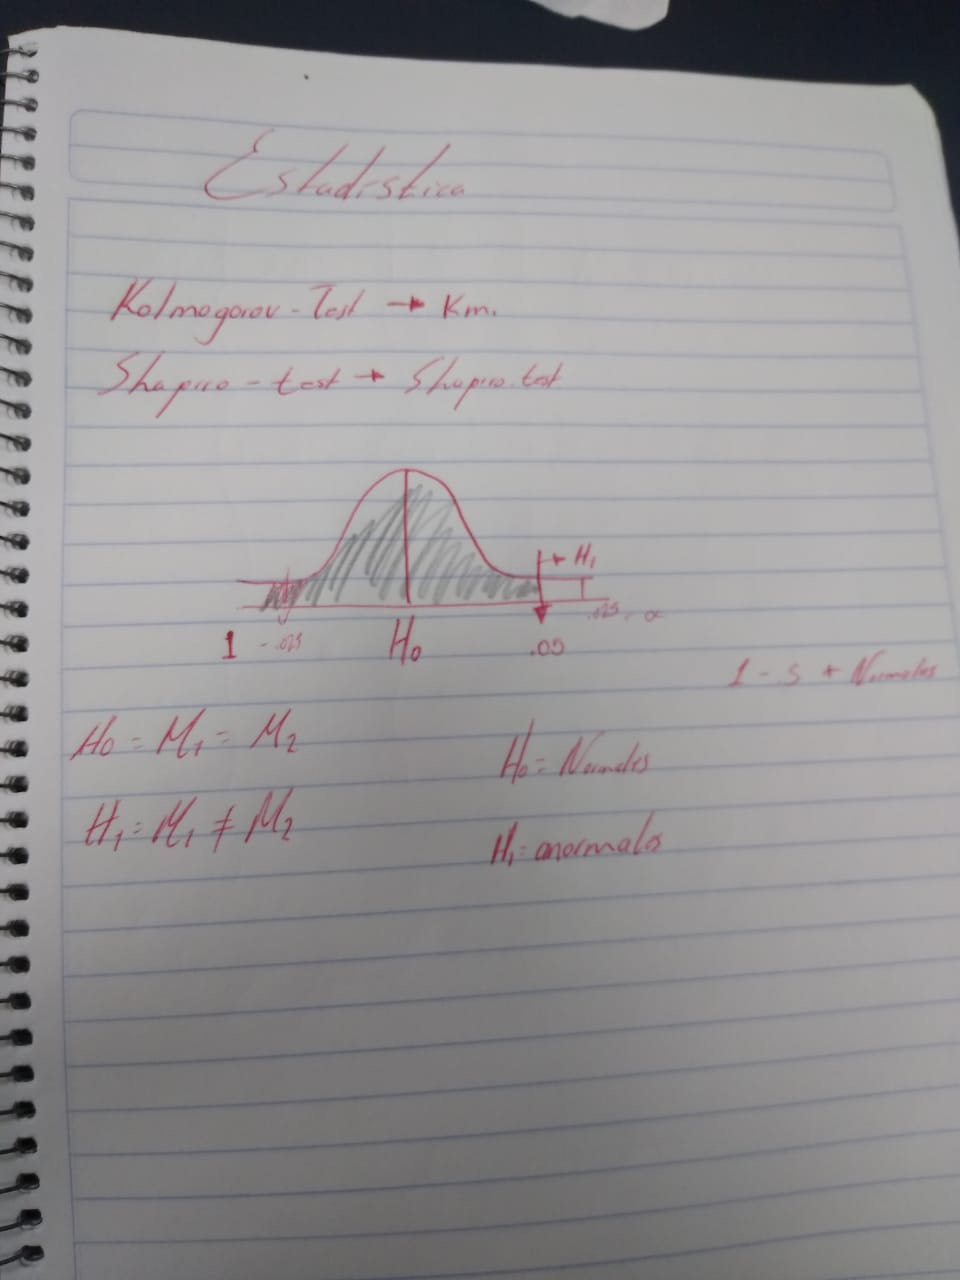 Estadistica
Kolmogorov - Test → Km.
Shapiro - test → Shapiro.test
→ H₁
.025. α
1 - .025 H₀ .05
1 - S + Normales
H₀ = M₁ = M₂
H₀ = Normales
H₁ = M₁ ≠ M₂
H₁ = anormales